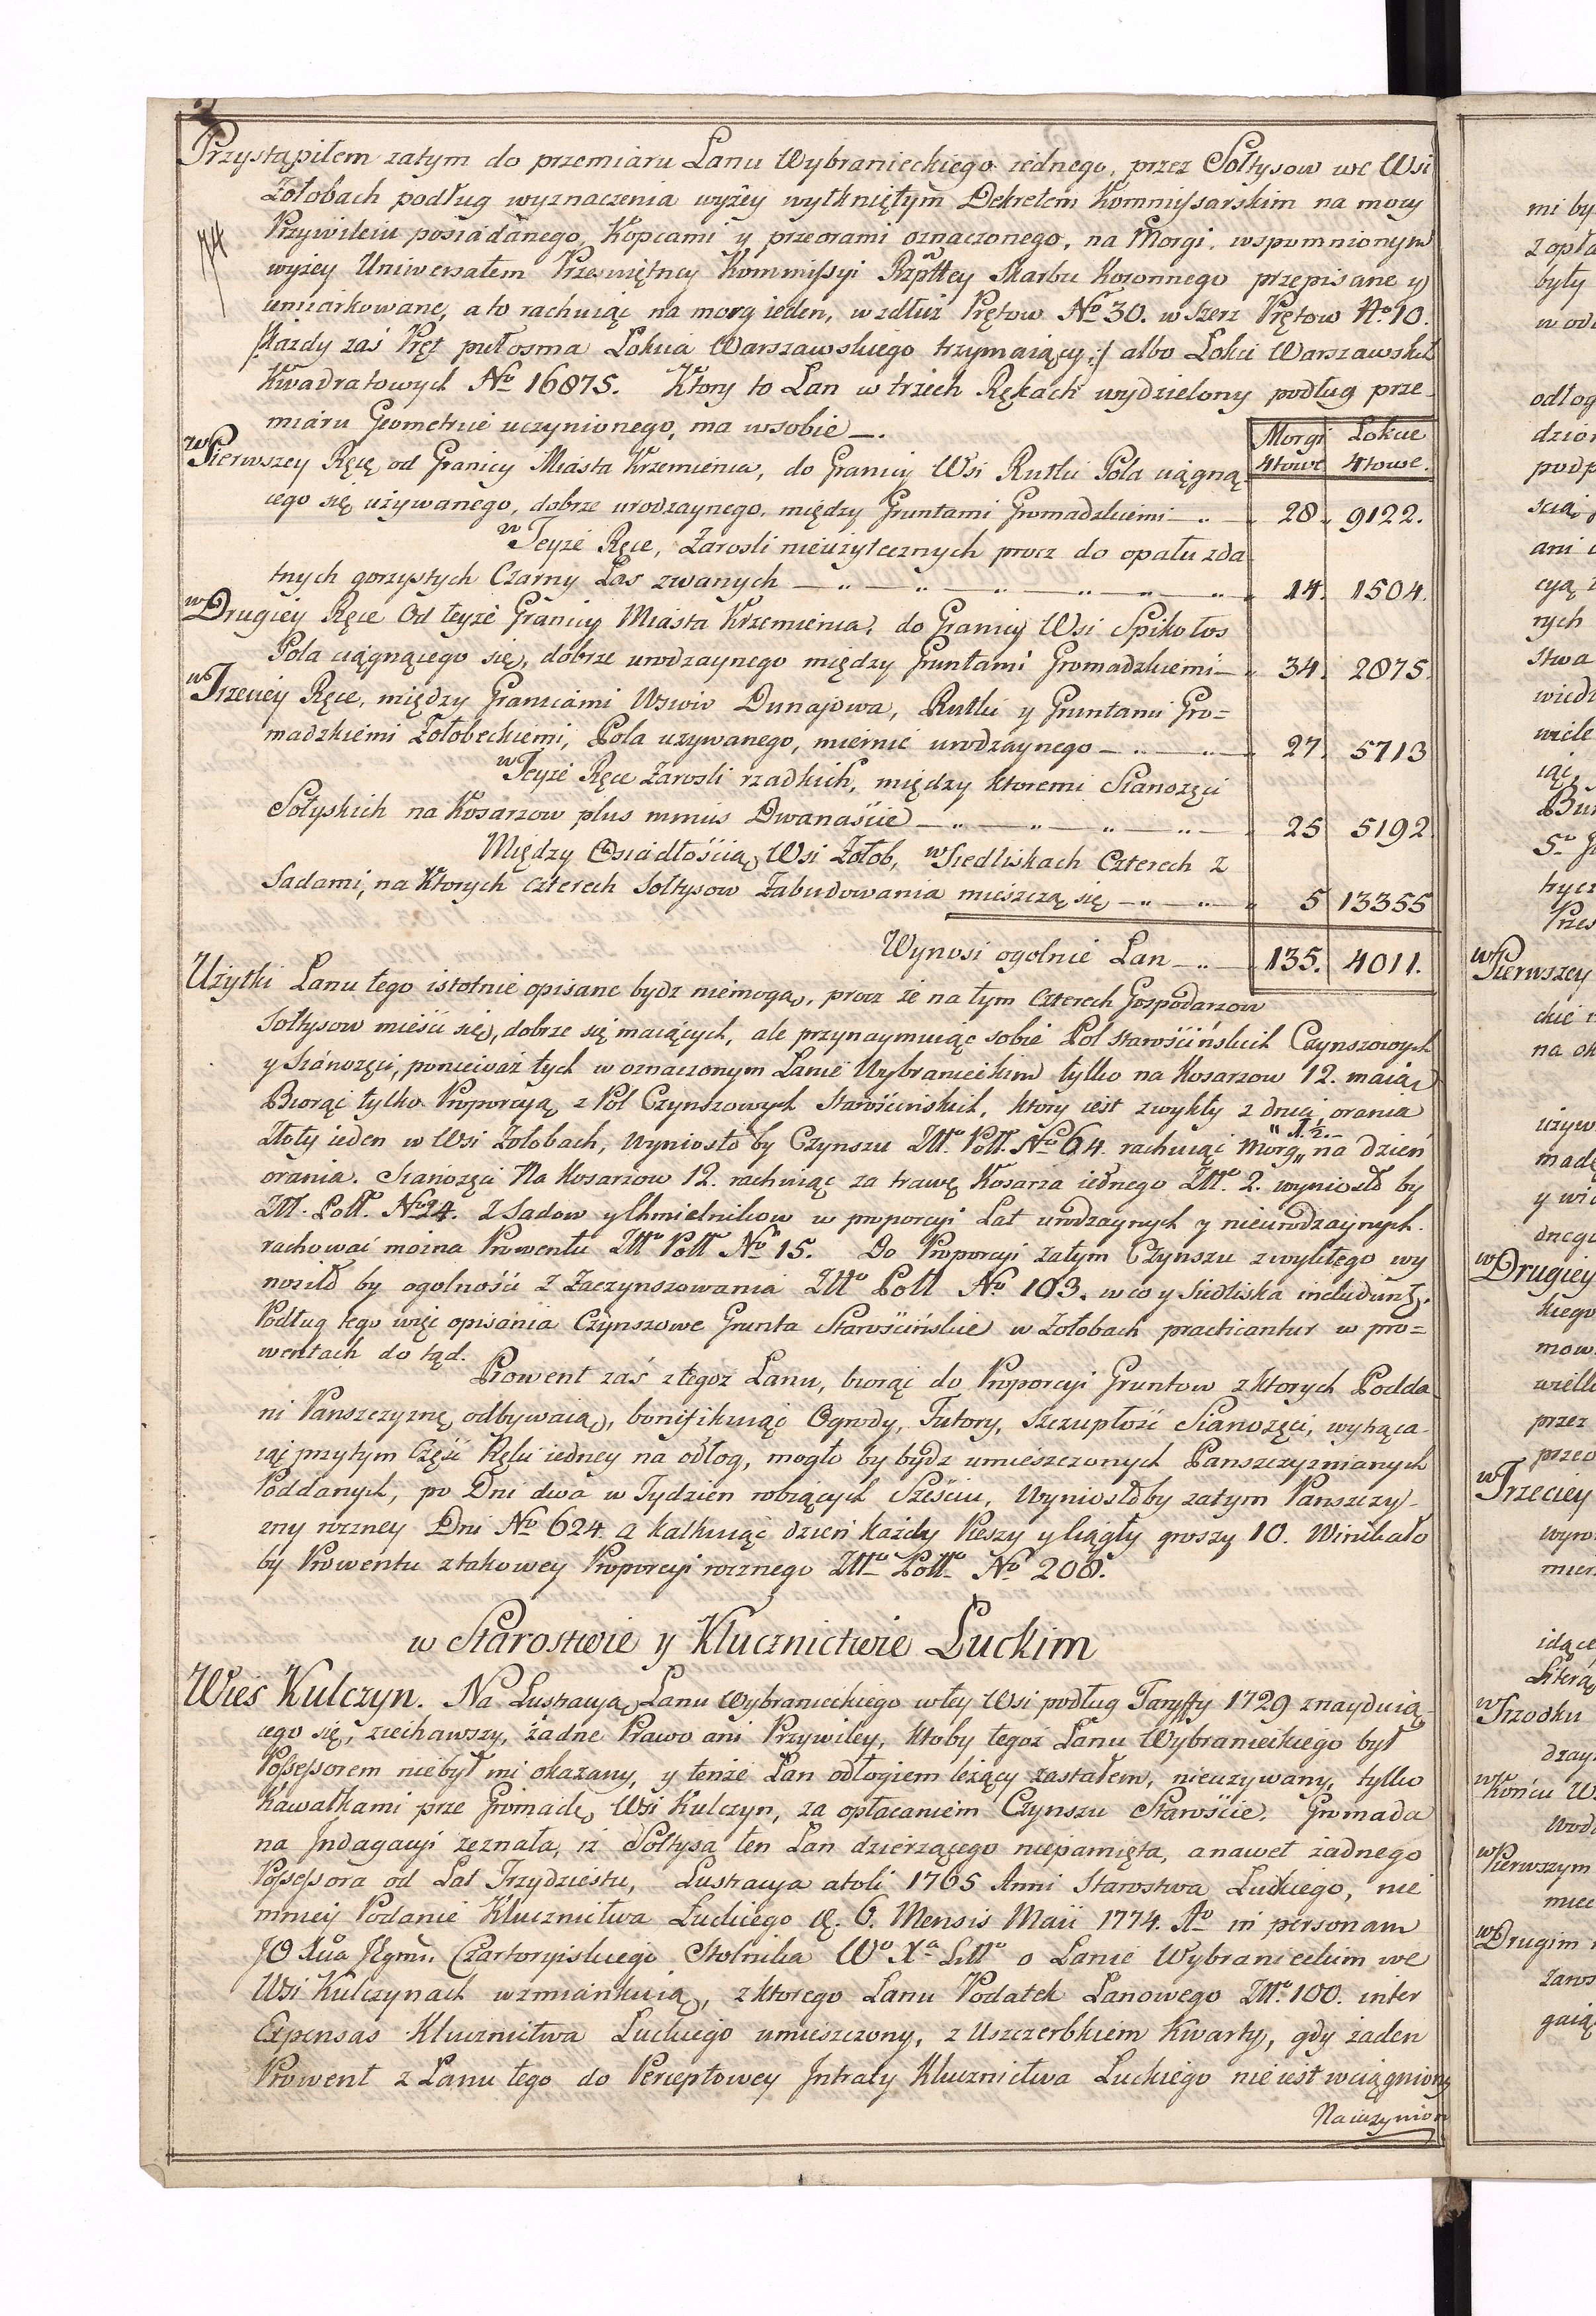 Przystąpiłem zatym do przemiaru Lanu Wybranieckiego iednego, przez Sołtysow we Wsi
Zołobach podług wyznaczenia wyżey wytkniętym Dekretem Kommissarskim na mocy
Przywileiu posiadanego, Kopcami y przeorami oznaczonego, na Morgi, wspomnionym
wyżey Uniwersałem Przeświętney Kommissyi Rzpttey Skarbu Koronnego przepisane y
umiarkowane, a to rachuiąc na morg ieden, wzdłuż Prętow No 30. w szerz Prętow No 10.
/:każdy zaś Pręt puł osma Łokcia Warszawskiego trzymaiący:/ albo Łokci Warszawskich
Kwadratowych No 16875. Ktory to Lan w trzech Rękach wydzielony podług prze-
miaru Geometrice uczynionego, ma w sobie —.
Morgi Łokcie
4towe 4towe.
w Pierwszey Ręce od Granicy Miasta Krzemienca, do Granicy Wsi Rutki Pola ciągną
cego się używanego, dobrze urodzaynego, między Gruntami Gromadzkiemi — 28. 9122.
w Teyże Ręce, Zarosli nieużytecznych procz do opału zda
tnych gorzystych Czarny Las zwanych — 14. 1504.
w Drugiey Ręce Od teyże Granicy Miasta Krzemienca, do Granicy Wsi Spikołos
Pola ciągnącego się, dobrze urodzaynego między Gruntami Gromadzkiemi — 34. 2875.
w Trzeciey Ręce, między Granicami Wsiow Dunajowa, Rutki y Gruntami Gro=
madzkiemi Zołobeckiemi, Pola uzywanego, miernie urodzaynego — 27. 5713
w Teyże Ręce Zarosli rzadkich, między ktoremi Sianożęci
Sołtyskich na Kosarzow plus minus Dwanaście — 25 5192.
Między Osiadłością Wsi Zołob, w Siedliskach Czterech z
Sadami, na Ktorych czterech Sołtysow Zabudowania mieszczą się — 5 13355
Wynosi ogolnie Lan — 135. 4011.
Użytki Lanu tego istotnie opisane bydz niemogą, procz że na tym Czterech Gospodarzow
Sołtysow mieści się, dobrze się maiących, ale przynaymuiąc sobie Pol Starościńskich Czynszowych
y Sianożęci, ponieważ tych w oznaczonym Lanie Wybranieckim tylko na Kosarzow 12. maią
Biorąc tylko Proporcyą z Pol Czynszowych Starościńskich, ktory iest zwykły z dnia orania
Złoty ieden w Wsi Zołobach, wyniosło by Czynszu Złło Poll. No 64. rachuiąc morg „1½.„ na dzień
orania. Sianożęci Na Kosarzow 12. rachuiąc za trawę Kosarza iednego Złło. 2. wyniosło by
Złł. Poll. No 24. Z Sadow y Chmielnikow w proporcyi Lat urodzaynych y nieurodzaynych
rachować można Prowentu Złło Poll No 15. Do Proporcyi zatym Czynszu zwykłego wy
nosiło by ogolności z Zaczynszowania Złło Poll No 103. w co y Siedliska includuntr.
Podług tego więc opisania Czynszowe Grunta Starościńskie w Zołobach practicantur w pro=
wentach do tąd.
Prowent zaś z tegoż Lanu, biorąc do Proporcyi Gruntow z ktorych Podda
ni Pańszczyznę odbywaią, bonifikuiąc Ogrody, Futory, szczupłość Sianożęci, wytrąca-
iąc przytym Część Ręki iedney na odłog, mogło by bydz umieszczonych Pańszczyznianych
Poddanych, po Dni dwa w Tydzien robiących Sześciu, Wyniosłoby zatym Panszczy-
zny roczney Dni No 624 a kalkuiąc dzień każdy Pieszy y ciągły groszy 10. Wynikało
by Prowentu z takowey Proporcyi rocznego Złło Poll No 208.
w Starostwie y Klucznictwie Łuckim
Wieś Kulczyn. Na Lustracyą Lanu Wybranieckiego w tey Wsi podług Taryffy 1729 znayduią-
cego się, ziechawszy, żadne Prawo ani Przywiley, ktoby tegoż Lanu Wybranieckiego był
Possessorem niebył mi okazany, y tenże Lan odłogiem leżący zastałem, nieuzywany, tylko
Kawałkami prze Gromadę Wsi Kulczyn, za opłacaniem Czynszu Staroście. Gromada
na Indagacyi zeznała, iż Sołtysa ten Lan dzierżącego niepamięta, anawet żadnego
Possessora od Lat Trzydziestu, Lustracya atoli 1765 Anni Starostwa Łuckiego, nie
mniey Podanie Klucznictwa Łuckiego d. 6. Mensis Maii 1774. Ao in personam
JO Xcia Jgmsi. Czartoryiskiego Stolnika Wo Xa Litto o Lanie Wybranieckim we
Wsi Kulczynach wzmiankuią, z ktorego Lanu Podatek Lanowego Złło. 100. inter
Expensas Klucznictwa Łuckiego umieszczony, z Uszczerbkiem Kwarty, gdy żaden
Prowent z Lanu tego do Perceptowey Intraty Klucznictwa Łuckiego nie iest wciągniony
Na uczynion